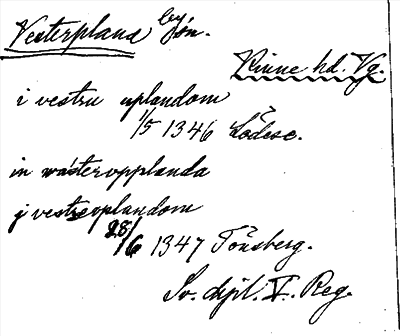 Vesterpland by
sn.
Kinne hd. Vg.
i vestru uplandom
1/5 1346 Lödese.
in wästeropplanda
j vestreoplandom
28/6 1347 Tönsberg.
Sv. dipl. V. Reg.